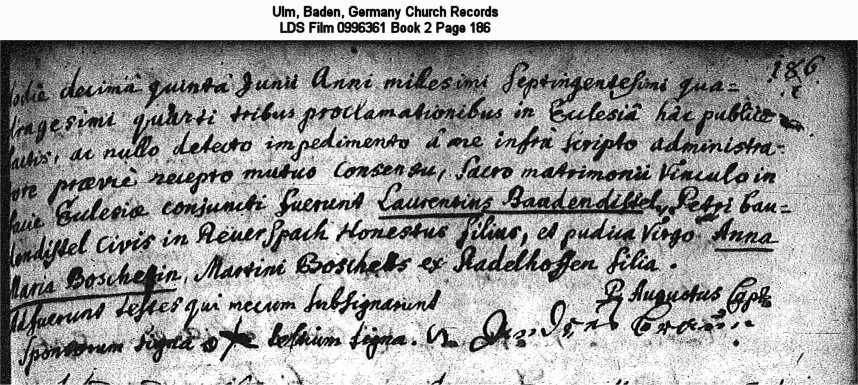 Ulm, Baden, Germany Church Records
LDS Film 0996361 Book 2 Page 186
186
hodie decimâ quintâ Junii Anni millesimi Septingentesimi qua=
dragesimi quarti tribus proclamationibus in Ecclesiâ hâc publicè
factis, ac nullo detecto impedimento à me infrà scripto administra-
tore præviè recepto mutuo consensu, sacro matrimonii Vinculo in
facie Ecclesiæ conjuncti fuerunt Laurentius Baudendistel, Petri bau=
dendistel civis in Reuerspach Honestus filius, et pudica Virgo Anna
Maria Boschertin, Martini Boscherts ex Stadelhoffen filia.
Adfuerunt testes qui mecum subsignarunt
P. Augustus Capu
sponsorum signa testium signa.